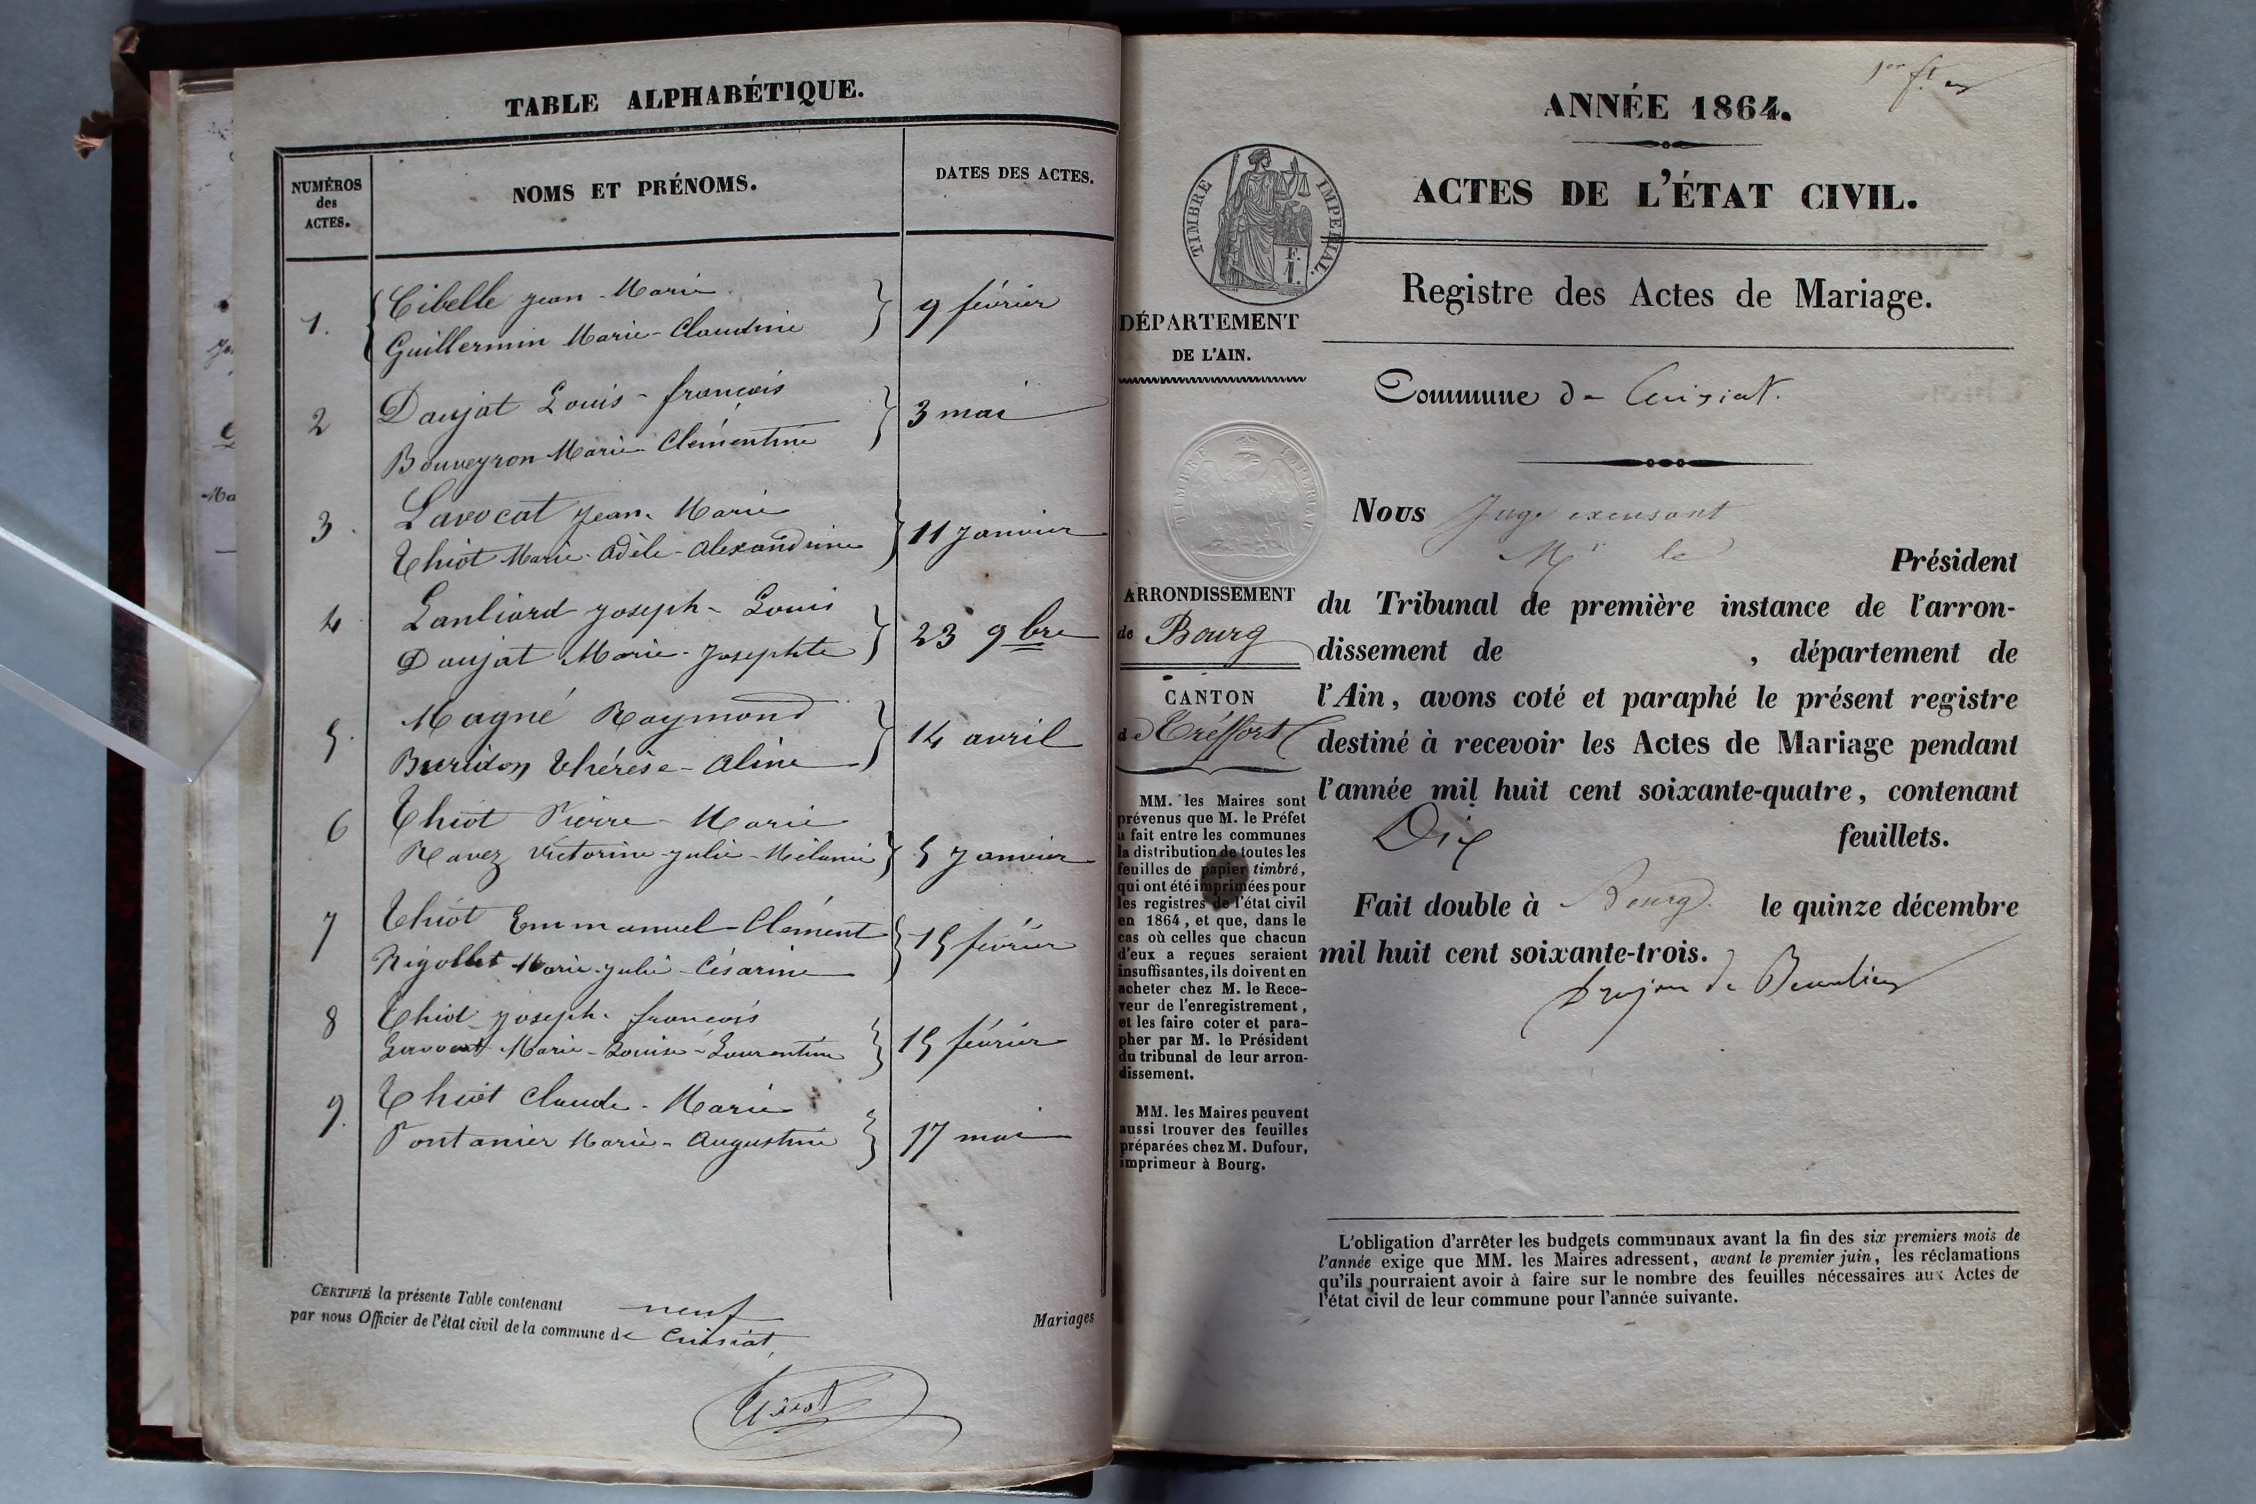 TABLE ALPHABÉTIQUE.
NUMÉROS
des
ACTES.
NOMS ET PRÉNOMS.
DATES DES ACTES.
1. Cibelle Jean-Marie
Guillermin Marie-Claudine
9 février
2 Daujat Louis-françois
Bouveyron Marie-Clémentine
3 mai
3. Lavocat Jean-Marie
Thiot Marie-Adèle-Alexandrine
11 Janvier
4 Lanliard Joseph-Louis
Daujat Marie-Josephte
23 9bre
5. Magné Raymond
Buridon Thérèse-Aline
14 avril
6 Thiot Pierre-Marie
Ravez Victorine-Julie-Mélanie
5 Janvier
7 Thiot Emmanuel-Clément
Rigollet Marie-Julie-Césarine
15 février
8 Thiot Joseph-françois
Lavocat Marie-Louise-Laurentine
15 février
9. Thiot Claude-Marie
Pontanier Marie-Augustine
17 mai
CERTIFIÉ la présente Table contenant neuf Mariages
par nous Officier de l'état civil de la commune de Cuisiat,
Thiot
1er f.t
ANNÉE 1864.
ACTES DE L'ÉTAT CIVIL.
TIMBRE IMPÉRIAL.
F.
1.
Registre des Actes de Mariage.
DÉPARTEMENT
DE L'AIN.
Commune de Cuisiat.
TIMBRE IMPERIAL
ARRONDISSEMENT
de Bourg
CANTON
de Tréffort
MM. les Maires sont
prévenus que M. le Préfet
a fait entre les communes
la distribution de toutes les
feuilles de papier timbré,
qui ont été imprimées pour
les registres de l'état civil
en 1864, et que, dans le
cas où celles que chacun
d'eux a reçues seraient
insuffisantes, ils doivent en
acheter chez M. le Rece-
veur de l'enregistrement,
et les faire coter et para-
pher par M. le Président
du tribunal de leur arron-
dissement.
MM. les Maires peuvent
aussi trouver des feuilles
préparées chez M. Dufour,
imprimeur à Bourg.
Nous Juge excusant
Mr le Président
du Tribunal de première instance de l'arron-
dissement de , département de
l'Ain, avons coté et paraphé le présent registre
destiné à recevoir les Actes de Mariage pendant
l'année mil huit cent soixante-quatre, contenant
Dix feuillets.
Fait double à Bourg. le quinze décembre
mil huit cent soixante-trois.
de Beaulieu
L'obligation d'arrêter les budgets communaux avant la fin des six premiers mois de
l'année exige que MM. les Maires adressent, avant le premier juin, les réclamations
qu'ils pourraient avoir à faire sur le nombre des feuilles nécessaires aux Actes de
l'état civil de leur commune pour l'année suivante.